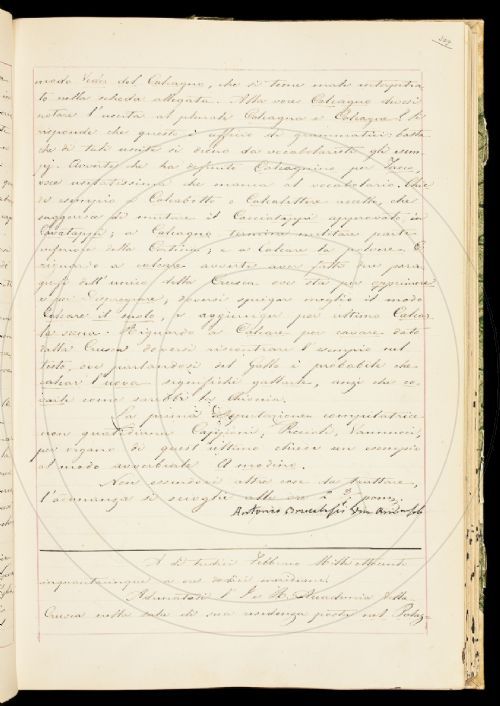 modo Vedi del Calcagno, che si teme male interpetra-
to nella scheda allegata. Alla voce Calcagno devesi
notare l'uscita al plurale Calcagna e Calcagne? Si
risponde che questo è ufficio di grammatici: basta
che di tali uscite si dieno da vocabolaristi gli esem-
pj. Avverte che ha definito Calcagnino per
voce usitatissima che manca al vocabolario. Chie
de esempio a Calcabotto e Calcalettere accetta, che
suggerisce di mutare il Cacciatappi approvato in
Cavatappi; a Calcagno termine militare parte
inferiore della Cortina; e a Calcare la
riguardo a calcare avverte aver fatto due para-
grafi dell'unico della Crusca ove sta per opprimere
e per Dispregiare, doversi spiegar meglio il modo
Calcare il suolo, e aggiunga per ultimo Calcar
la scena. Riguardo a Calcare per cavare dato
dalla Crusca doversi riscontrare l'esempio nel
testo, ove parlandosi del Gallo è probabile che
calcar l'uova significhi gallarle, anzi che co-
varle come sarebbe la Chioccia.
La prima Deputazione compilatrice
non quotidiana Capponi, Vannucci,
per organo di quest'ultimo chiese un esempio
al modo avverbiale A modino.
Non essendovi altre cose da trattare,
l'adunanza si scioglie alle ore 2 3/4 pom;
Antonio Brucalassi
A dì tredici Febbraio Mille ottocento
cinquantacinque a ore dodici meridiane.
Adunatasi l'I. e R. Accademia della
Crusca nelle sale di sua residenza poste nel Palaz-